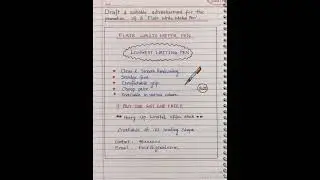 Draft a suitable advertisement for the
promotion of a Flato Write Metal Pen.
FLATO WRITE METAL PEN
LONGEST LASTING PEN
Clear & Smooth Handwriting
Smudge free
Comfortable grip
Cheap price
Available in various colours
BUY ONE GET ONE FREE
Hurry Up Limited offer stock
Available at all leading shops
Contact :
Email :